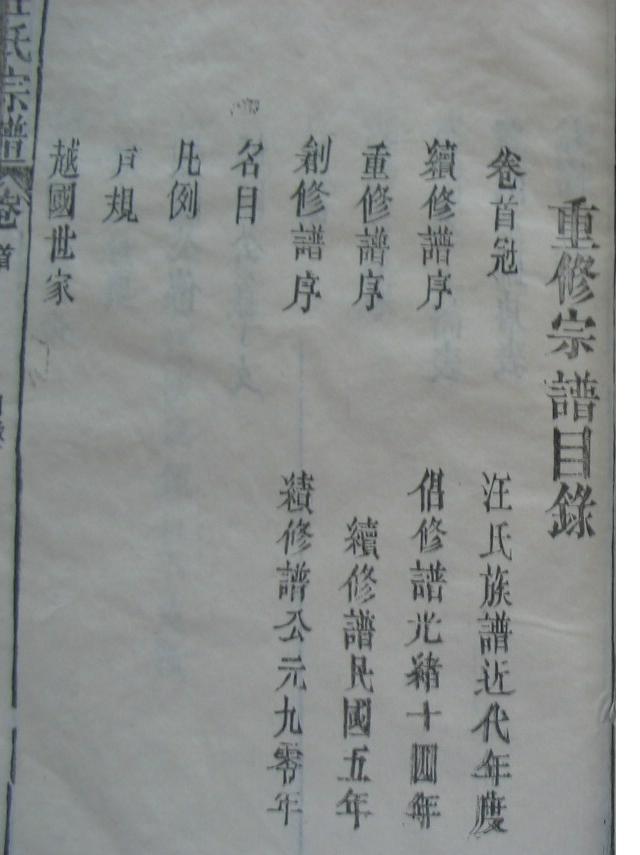 重修宗譜目錄
卷首冠
汪氏族譜近代年度
續修譜序
倡修譜光緒十四年
重修譜序
續修譜民國五年
創修譜序
續修譜公元九零年
名目
凡例
戶規
越國世家
氏宗譜 卷首